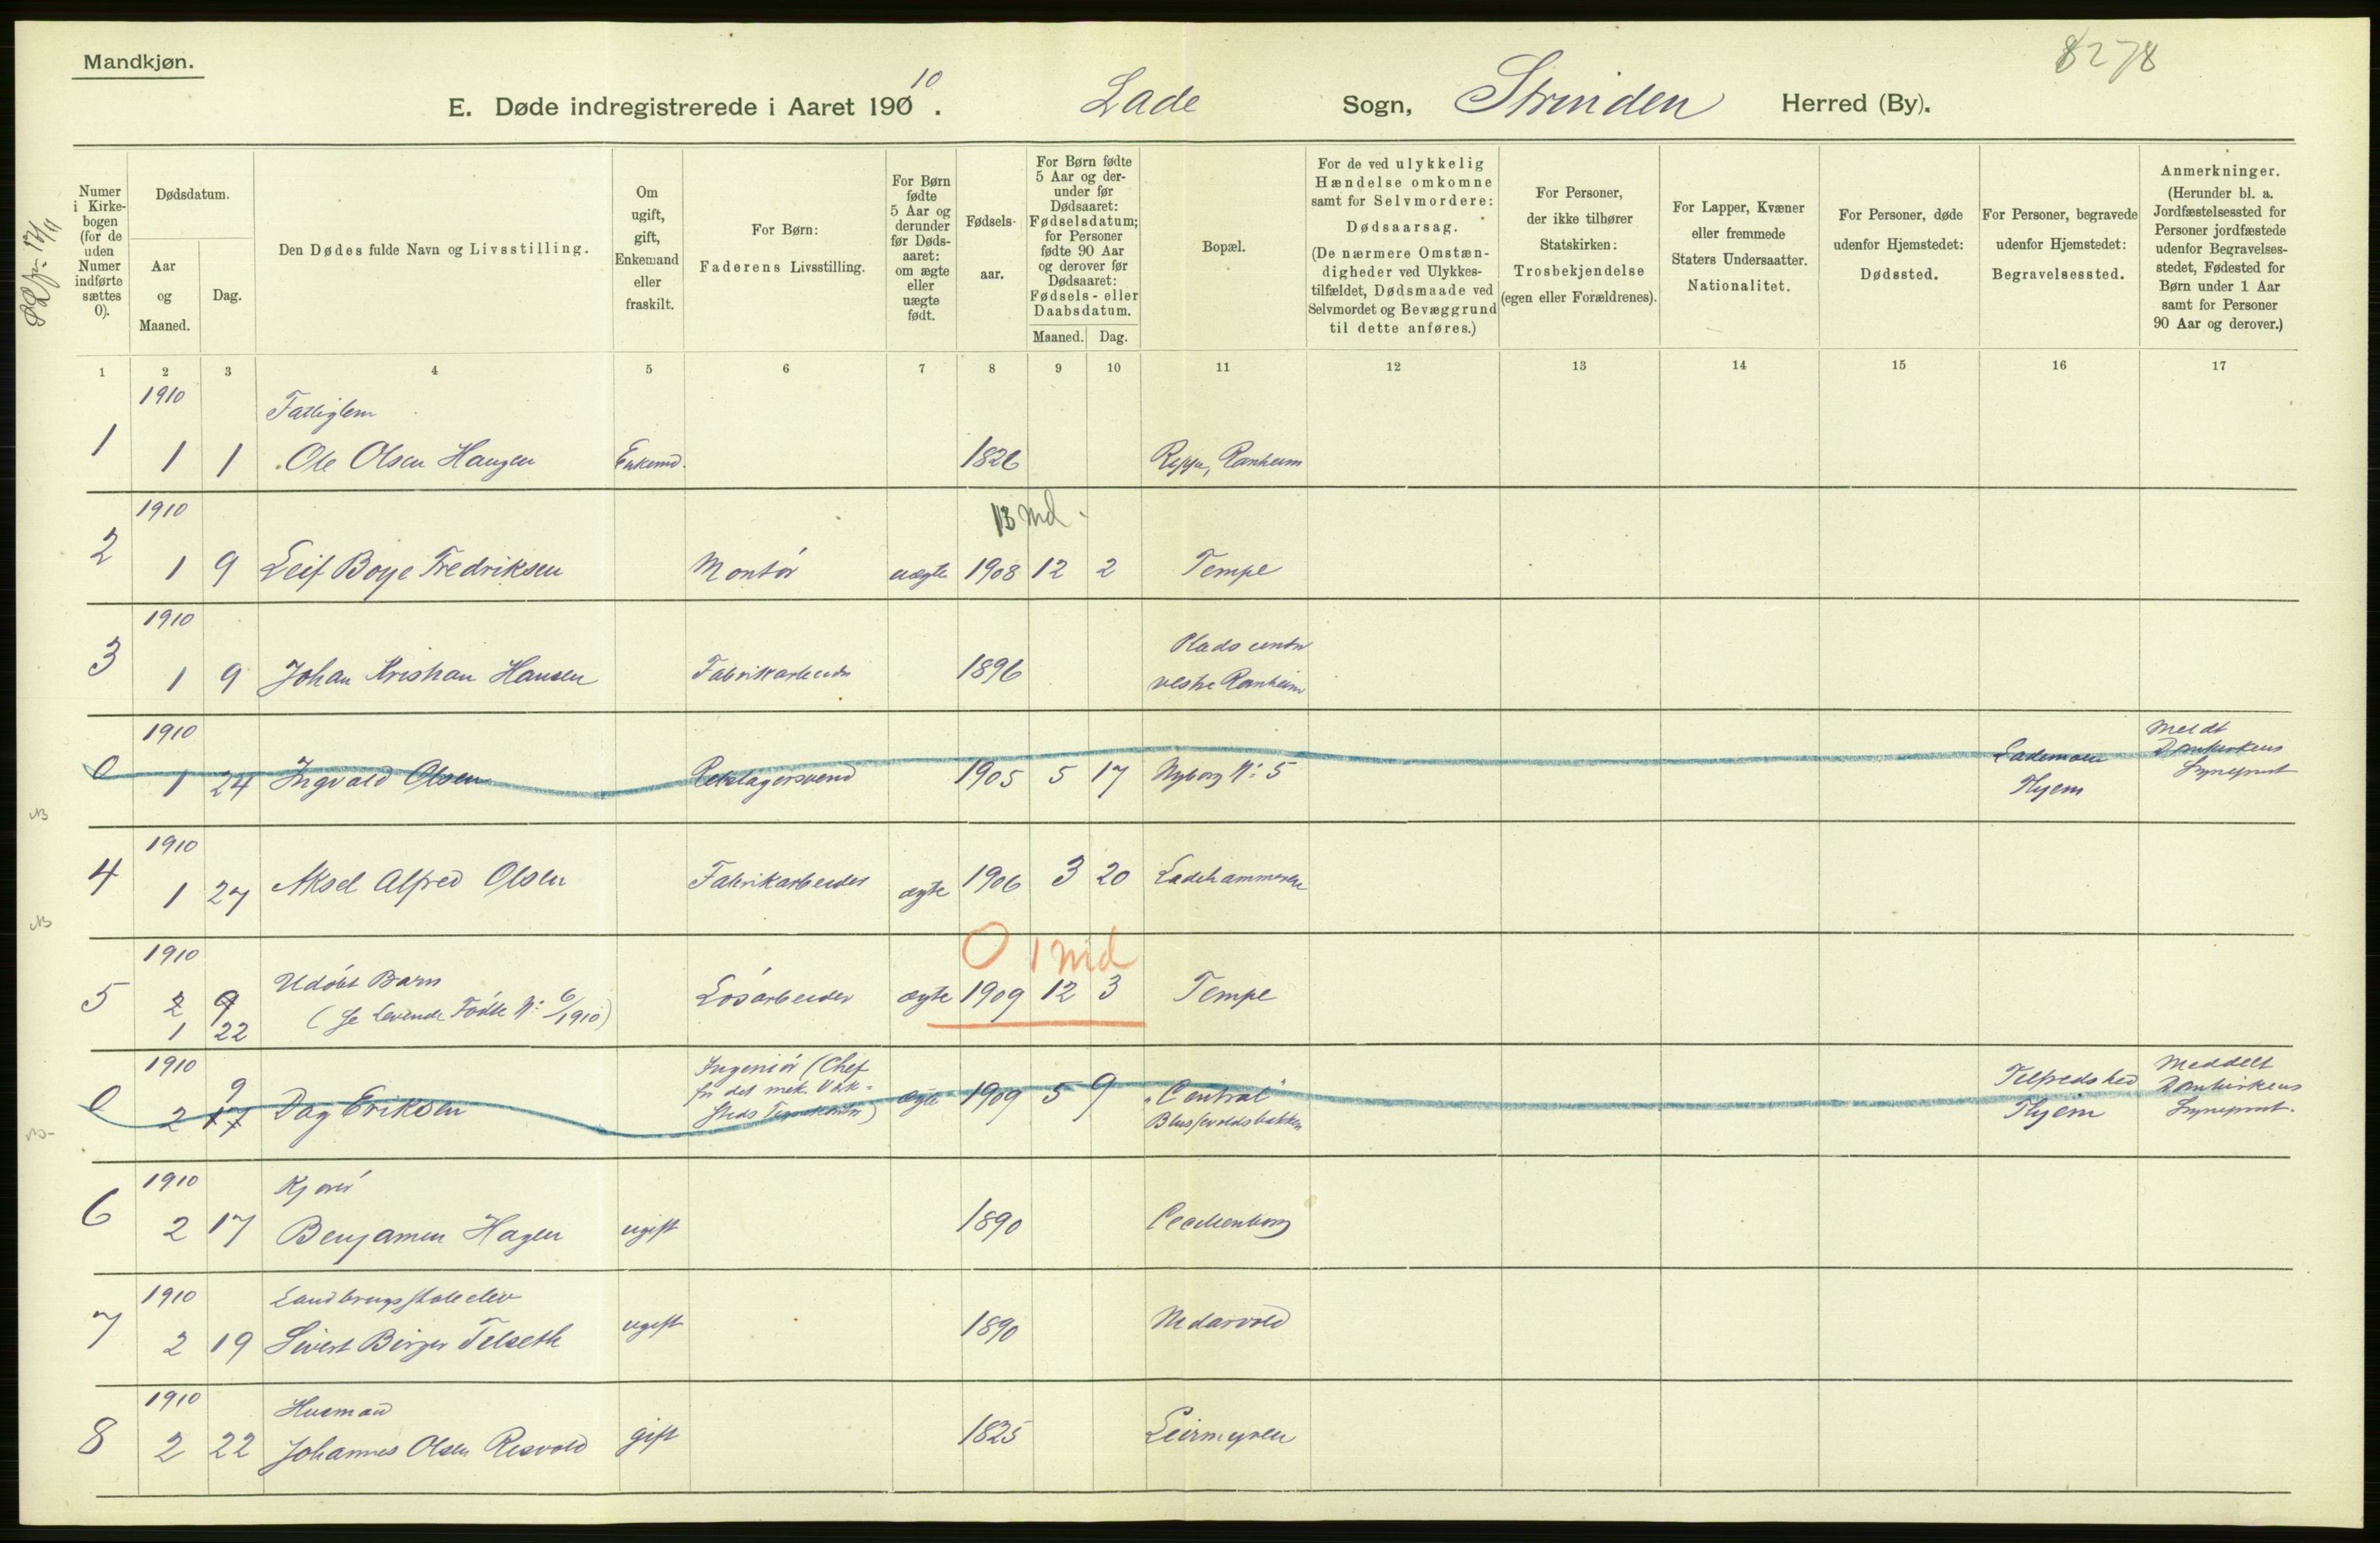 Mandkjøn.
8278
E. Døde indregistrerede i Aaret 1900. 10 Lade Sogn, Strinden Herred (By).
Numer i Kirkebogen (for de uden Numer indførte sættes 0).
Dødsdatum.
Aar og Maaned.
Dag.
Den Dødes fulde Navn og Livsstilling.
Om ugift, gift, Enkemand eller fraskilt.
For Børn: Faderens Livsstilling.
For Børn fødte 5 Aar og derunder før Dødsaaret: om ægte eller uægte født.
Fødselsaar.
For Børn fødte 5 Aar og derunder før Dødsaaret: Fødselsdatum; for Personer fødte 90 Aar og derover før Dødsaaret: Fødsels- eller Daabsdatum.
Maaned. Dag.
Bopæl.
For de ved ulykkelig Hændelse omkomne samt for Selvmordere: Dødsaarsag. (De nærmere Omstændigheder ved Ulykkestilfældet, Dødsmaade ved Selvmordet og Bevæggrund til dette anføres.)
For Personer, der ikke tilhører Statskirken: Trosbekjendelse (egen eller Forældrenes).
For Lapper, Kvæner eller fremmede Staters Undersaatter. Nationalitet.
For Personer, døde udenfor Hjemstedet: Dødssted.
For Personer, begravede udenfor Hjemstedet: Begravelsessted.
Anmerkninger. (Herunder bl. a. Jordfæstelsessted for Personer jordfæstede udenfor Begravelsesstedet, Fødested for Børn under 1 Aar samt for Personer 90 Aar og derover.)
1 2 3 4 5 6 7 8 9 10 11 12 13 14 15 16 17
1910 Fattiglem
1 1 1 Ole Olsen Haugen Enkemd. 1826 Reppe, Ranheim
1910 13 Md.
2 1 9 Leif Boye Fredriksen Montør uægte 1908 12 2 Tempe
1910 Plads under
3 1 9 Johan Kristian Hansen Fabrikarbeider 1896 vestre Ranheim
1910 Meldt
0 1 24 Ingvald Olsen 1905 5 17 Nyborg N: 5 Lademoen Domkirkens
Thjem Sogneprest
NB
1910
4 1 27 Aksel Alfred Olsen Fabrikarbeider ægte 1906 3 20 Ladehammeren
NB
0 1 Md
1910 Udøbt Barn
5 2 9 Løsarbeider ægte 1909 12 3 Tempe
1 22 (se levende Fødte N: 6/1910)
1910 9 Ingeniør (Chef Tilfredshed Meddelt
0 2 17 Dag Eriksen for det mek. Værksteds ægte 1909 5 9 "Central" Thjem Domkirkens
Sogneprest.
1910
6 2 17 Benjamin Hagen ugift 1890 Cecilienborg
1910 Landbrugsskoleelev
7 2 19 Sivert Birger Telseth ugift 1890 Nedarvold
1910 Husmand
8 2 22 Johannes Olsen Risvold gift 1825 Leirmyren